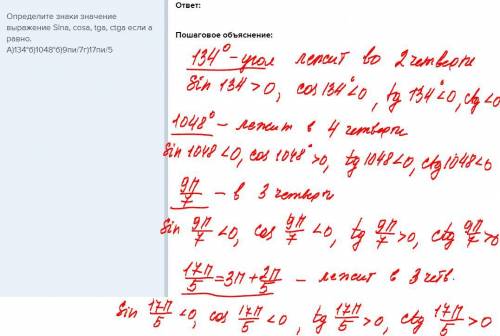 Определите знаки значение
выражение SIna, cosa, tga, ctga если a
равно.
А)134°б)1048°б)9пи/7г)17пи/5
Ответ:
Пошаговое объяснение:
134° - угол лежит во 2 четверти
Sin 134 > 0, cos 134° < 0, tg 134° < 0, ctg < 0
1048° - лежит в 4 четверти
Sin 1048 < 0, cos 1048° > 0, tg 1048 < 0, ctg 1048 < 0
9π/7 - в 3 четверти
Sin 9π/7 < 0, cos 9π/7 < 0, tg 9π/7 > 0, ctg 9π/7 > 0
17π/5 = 3π + 2π/5 - лежит в 3 четв.
Sin 17π/5 < 0, cos 17π/5 < 0, tg 17π/5 > 0, ctg 17π/5 > 0